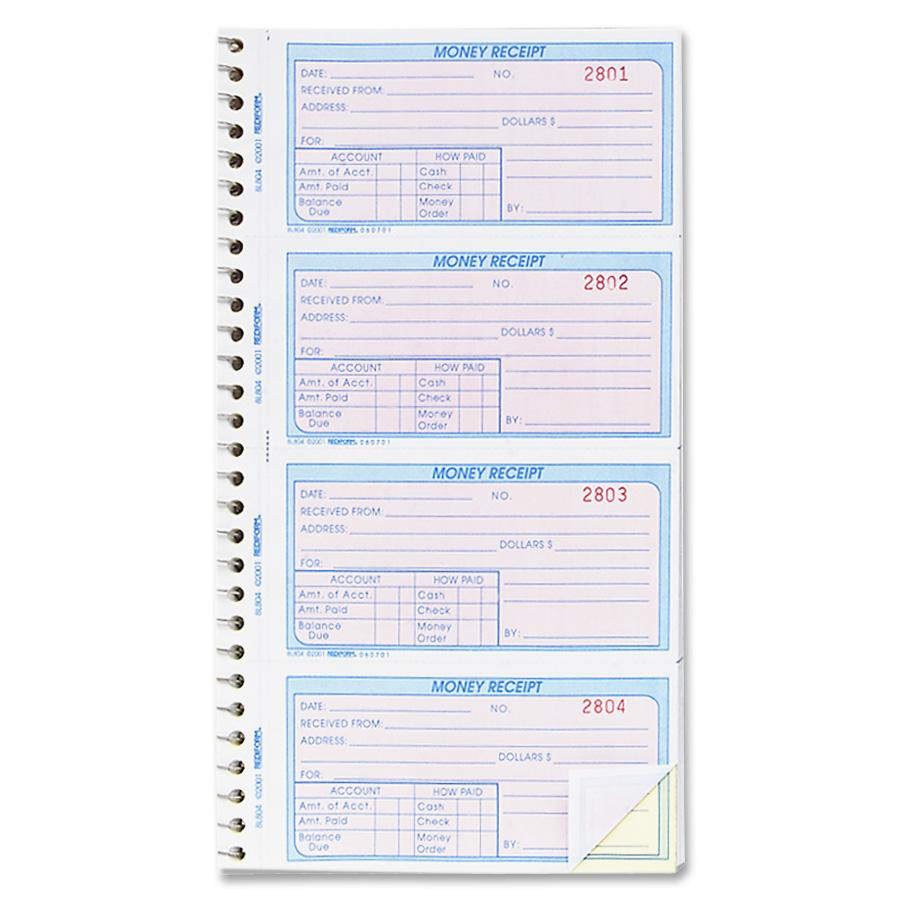 MONEY RECEIPT
DATE: NO. 2801
RECEIVED FROM:
ADDRESS:
DOLLARS $
FOR:
ACCOUNT HOW PAID
Amt. of Acct. Cash
Amt. Paid Check
Balance Due Money Order
BY:
8L804 ©2001 REDIFORM. 060701
8L804 ©2001 REDIFORM.
MONEY RECEIPT
DATE: NO. 2802
RECEIVED FROM:
ADDRESS:
DOLLARS $
FOR:
ACCOUNT HOW PAID
Amt. of Acct. Cash
Amt. Paid Check
Balance Due Money Order
BY:
8L804 ©2001 REDIFORM. 060701
8L804 ©2001 REDIFORM.
MONEY RECEIPT
DATE: NO. 2803
RECEIVED FROM:
ADDRESS:
DOLLARS $
FOR:
ACCOUNT HOW PAID
Amt. of Acct. Cash
Amt. Paid Check
Balance Due Money Order
BY:
8L804 ©2001 REDIFORM. 060701
8L804 ©2001 REDIFORM.
MONEY RECEIPT
DATE: NO. 2804
RECEIVED FROM:
ADDRESS:
DOLLARS $
FOR:
ACCOUNT HOW PAID
Amt. of Acct. Cash
Amt. Paid Check
Balance Due Money Order
BY:
8L804 ©2001 REDIFORM.